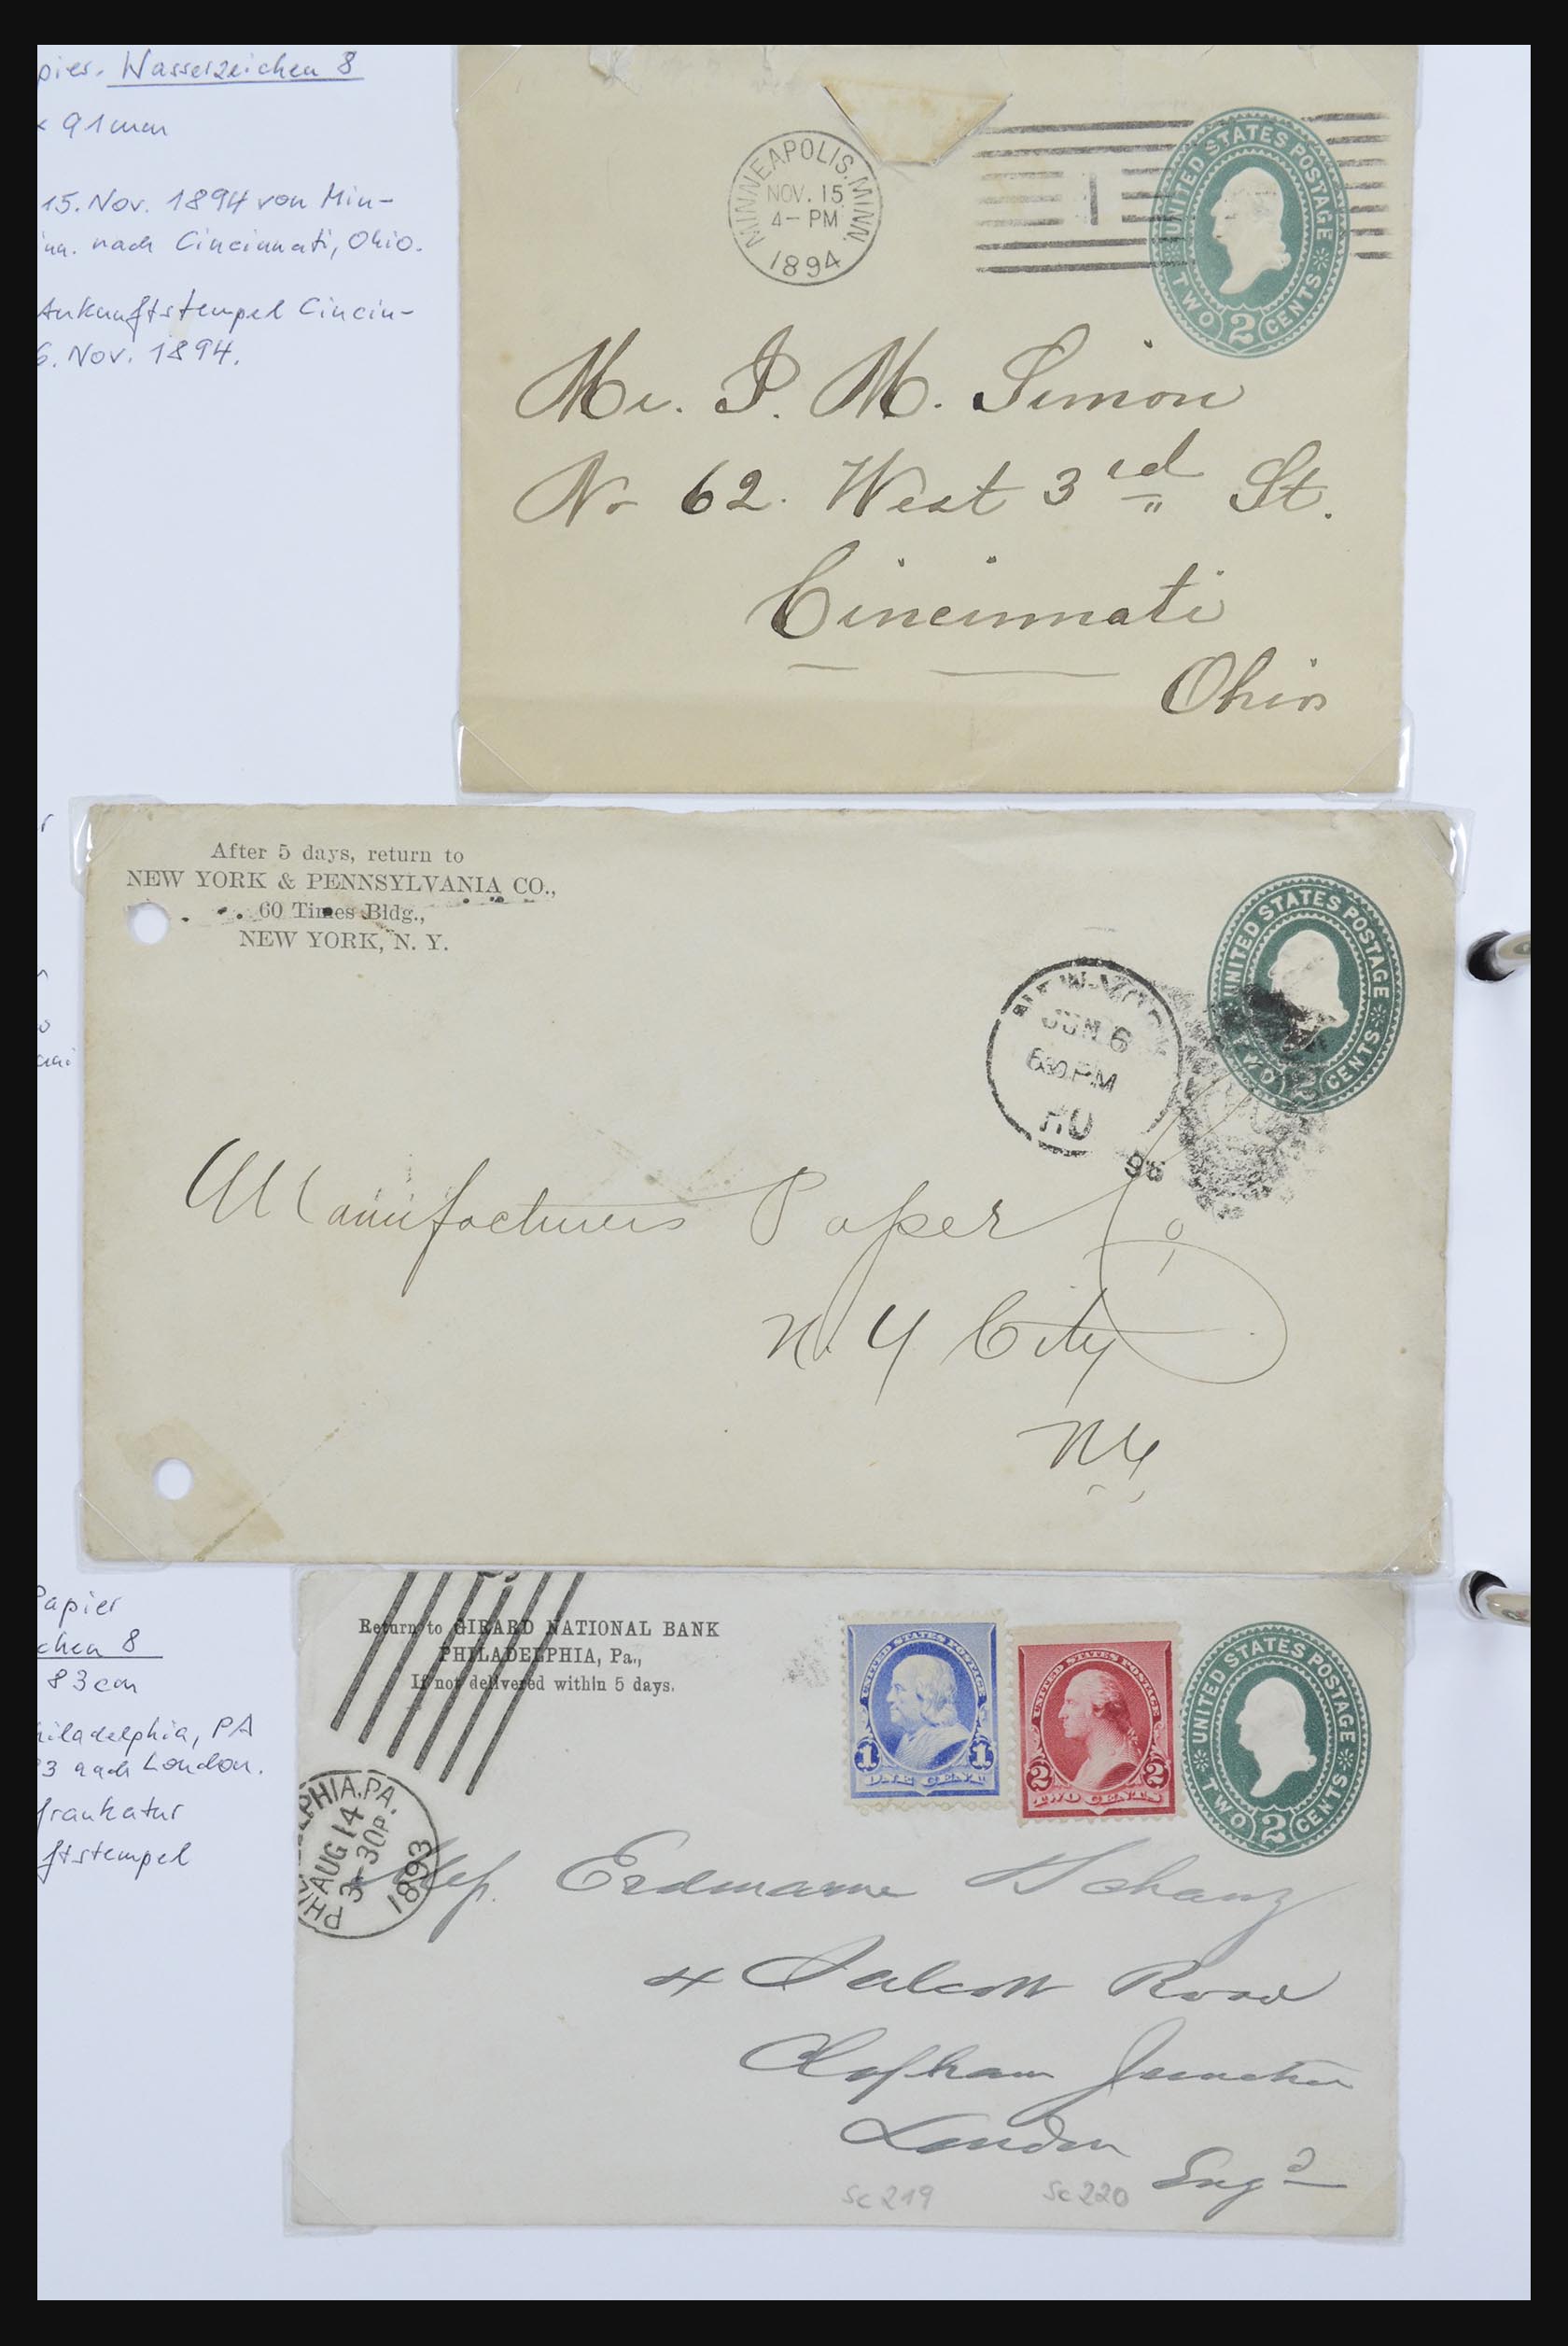 Wasserzeichen 8
91mm
15. Nov. 1894 von Min-
nach Cincinnati, Ohio.
Ankunftstempel Cincin-
6. Nov. 1894.
MINNEAPOLIS, MINN.
NOV. 15
4-PM
1894
1
UNITED STATES POSTAGE
TWO 2 CENTS
Mr. I. M. Simon
No 62. West 3rd St.
Cincinnati
Ohio
After 5 days, return to
NEW YORK & PENNSYLVANIA CO.,
60 Times Bldg.,
NEW YORK, N. Y.
UNITED STATES POSTAGE
TWO 2 CENTS
NEW-YORK
JUN 6
630PM
96
Manufacturers Paper Co,
N.Y City
NY
Papier
8
83cm
Philadelphia, PA
3 nach London.
frankatur
Return to GIRARD NATIONAL BANK
PHILADELPHIA, Pa.,
If not delivered within 5 days.
UNITED STATES POSTAGE
1 1
ONE CENT
UNITED STATES POSTAGE
2 2
TWO CENTS
UNITED STATES POSTAGE
TWO 2 CENTS
PHILADELPHIA, PA.
AUG 14
3-30P
1893
Erdmann Schanz
4 Salcott Road
Clapham Junction
London
Engd
Sc 219 Sc 220